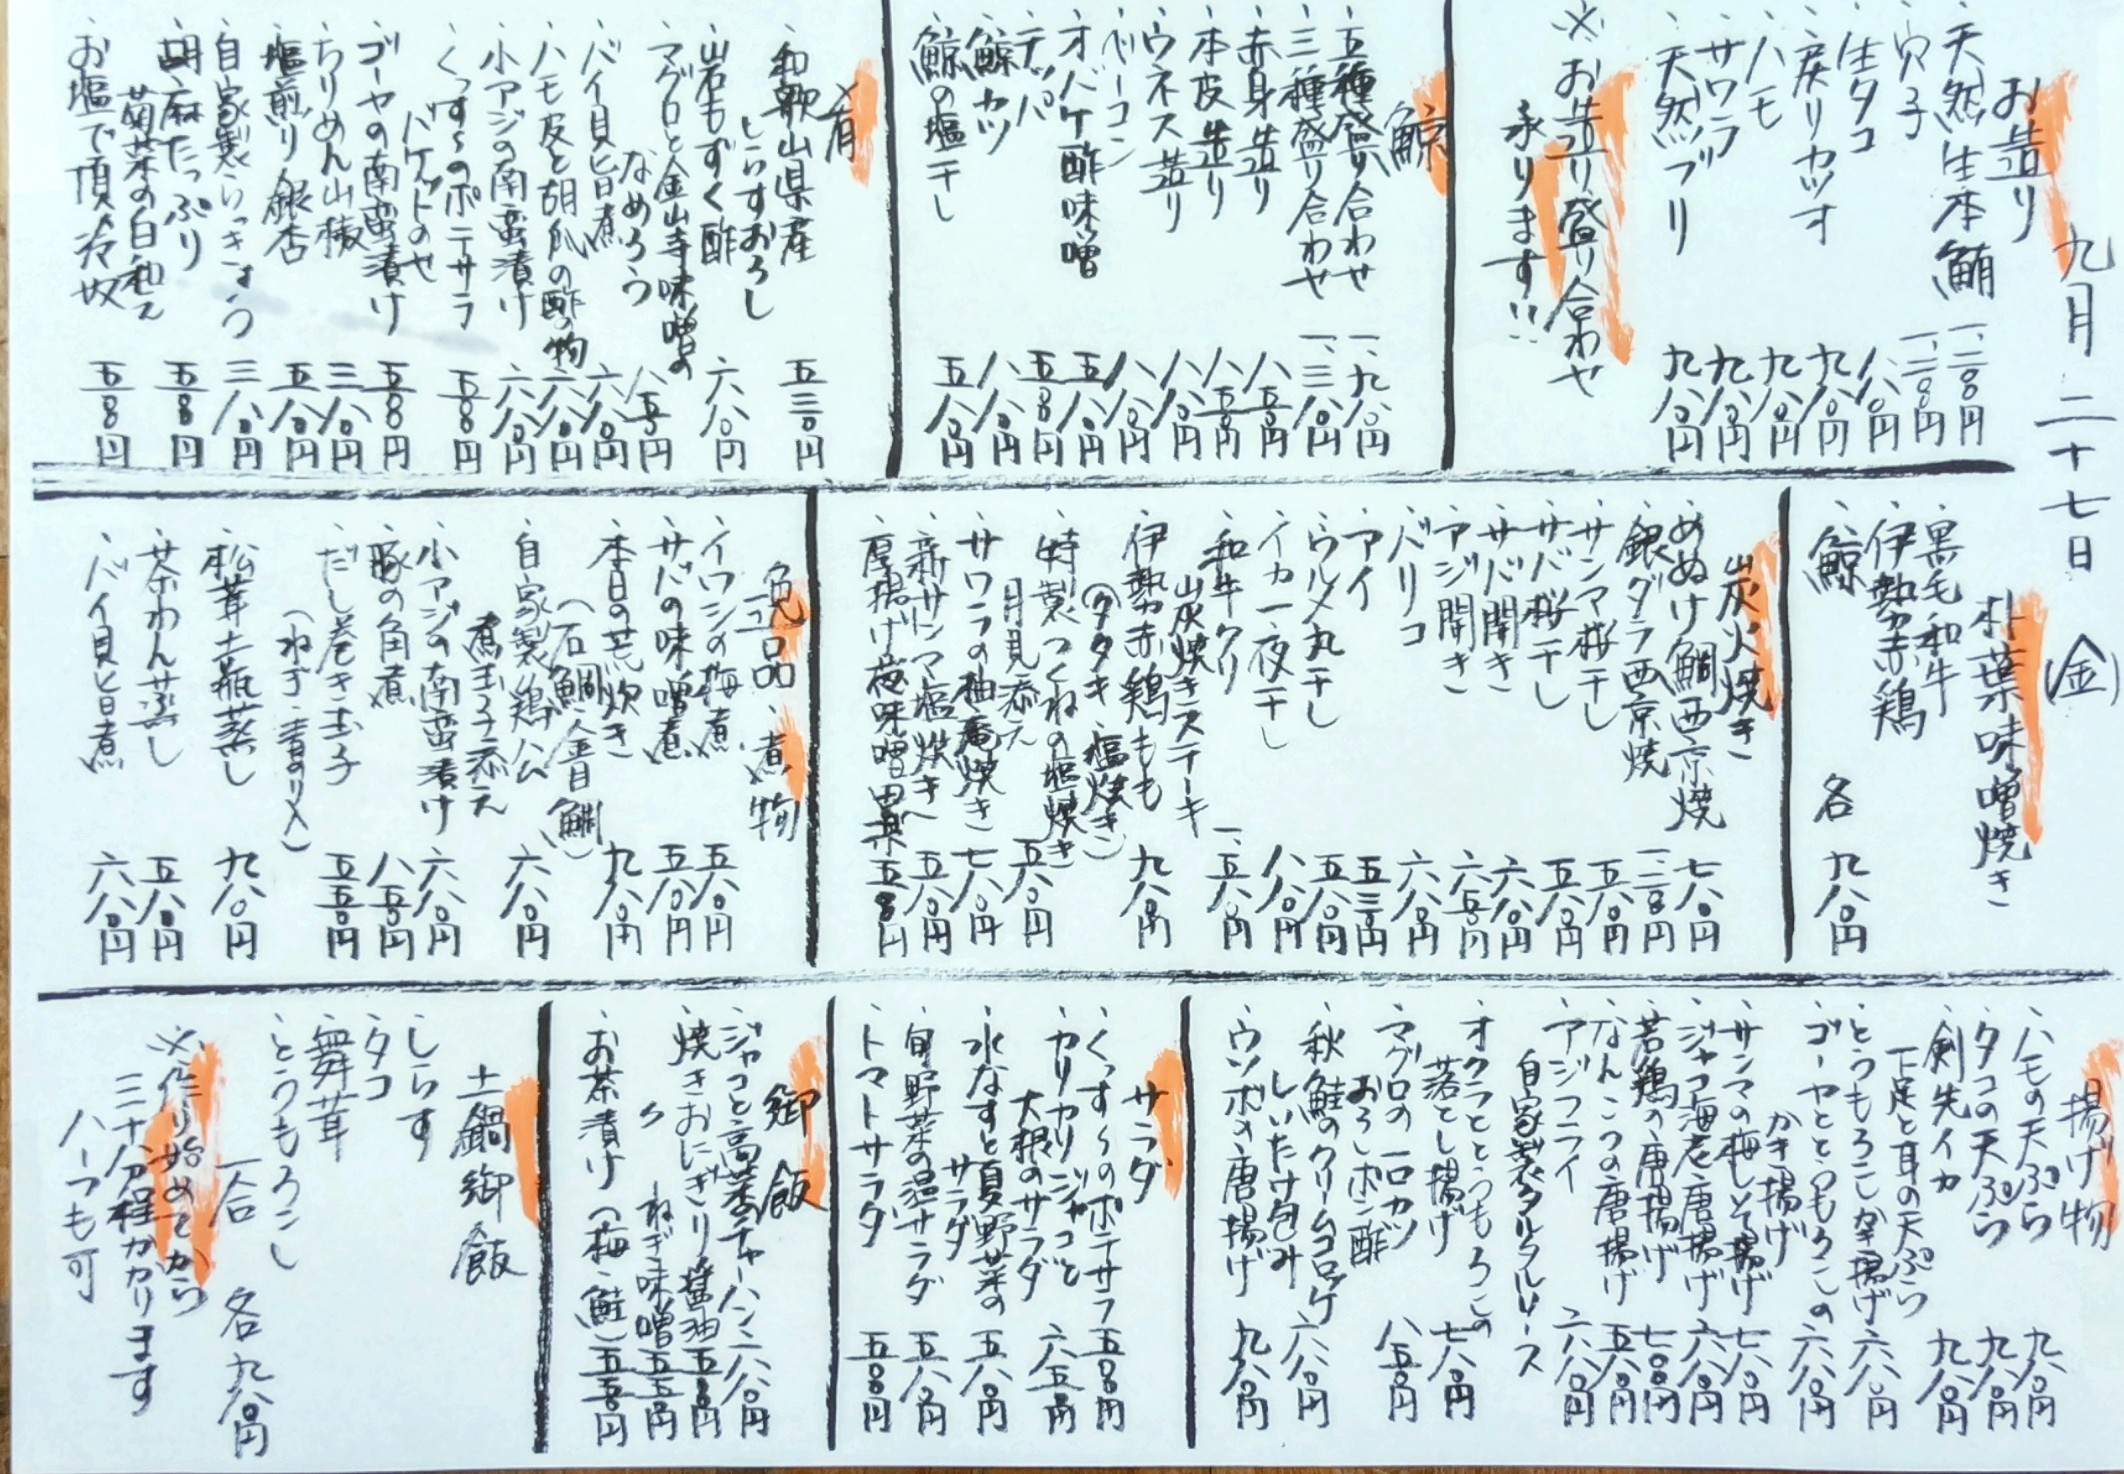 九月二十七日(金)
お造り
・天然生本鮪 一、二〇〇円
・穴子 一、二〇〇円
・生タコ 八八〇円
・戻りカツオ 九八〇円
・ハモ 九八〇円
・サワラ 九八〇円
・天然ブリ 九八〇円
※お造り盛り合わせ
承ります!!
鯨
・五種盛り合わせ 一、九八〇円
・三種盛り合わせ 一、三八〇円
・赤身造り 八五〇円
・本皮造り 八五〇円
・ウネス造り 八八〇円
・ベーコン 八八〇円
・オバケ酢味噌 五八〇円
・テッパ 五五〇円
・鯨カツ 八八〇円
・鯨の塩干し 五八〇円
肴
・和歌山県産
しらすおろし 五三〇円
・岩もずく酢 六八〇円
・マグロと金山寺味噌の
なめろう 八五〇円
・バイ貝旨煮 六八〇円
・ハモ皮と胡瓜の酢の物 六八〇円
・小アジの南蛮漬け 六八〇円
・くっす〜のポテサラ
バケットのせ 五五〇円
・ゴーヤの南蛮漬け 五五〇円
・ちりめん山椒 三八〇円
・塩煎り銀杏 五八〇円
・自家製らっきょう 三八〇円
・胡麻たっぷり
菊菜の白和え 五五〇円
・お塩で頂く冷奴 五五〇円
朴葉味噌焼き
・黒毛和牛
・伊勢赤鶏
・鯨 各 九八〇円
炭火焼き
・めぬけ鯛西京焼 七八〇円
・銀ダラ西京焼 一、二〇〇円
・サンマ桜干し 五八〇円
・サバ桜干し 五八〇円
・サバ開き 六八〇円
・アジ開き 六五〇円
・バリコ 六八〇円
・アイ 五三〇円
・ウルメ丸干し 五八〇円
・イカ一夜干し 八八〇円
・和牛クリ
炭焼きステーキ 一、五八〇円
・伊勢赤鶏もも
(タタキ・塩焼き) 九八〇円
・特製つくねの塩焼き
月見添え 五八〇円
・サワラの柚庵焼き 七八〇円
・新サンマ塩焼き 五八〇円
・厚揚げ葱味噌田楽 五五〇円
逸品・煮物
・イワシの梅煮 五八〇円
・サバの味噌煮 五八〇円
・本日の荒炊き
(石鯛・金目鯛) 九八〇円
・自家製鶏ハム
煮玉子添え 六八〇円
・小アジの南蛮漬け 六八〇円
・豚の角煮 八五〇円
・だし巻き玉子
(ねぎ・青のり入) 五五〇円
・松茸土瓶蒸し 九八〇円
・茶わん蒸し 五八〇円
・バイ貝旨煮 六八〇円
揚げ物
・ハモの天ぷら 九八〇円
・タコの天ぷら 九八〇円
・剣先イカ
下足と耳の天ぷら 九八〇円
・とうもろこしかき揚げ 六八〇円
・ゴーヤととうもろこしの
かき揚げ 六八〇円
・サンマの梅しそ揚げ 七八〇円
・ジャコ海老唐揚げ 六八〇円
・若鶏の唐揚げ 七〇〇円
・なんこつの唐揚げ 五八〇円
・アジフライ
自家製タルタルソース 六八〇円
・オクラととうもろこしの
落とし揚げ 七八〇円
・マグロの一口カツ
おろしポン酢 八五〇円
・秋鮭のクリームコロッケ
しいたけ包み 六八〇円
・ウツボの唐揚げ 九八〇円
サラダ
・くっす〜のポテサラ 五五〇円
・カリカリジャコと
大根のサラダ 六五〇円
・水なすと夏野菜の
サラダ 五八〇円
・旬野菜の温サラダ 五八〇円
・トマトサラダ 五五〇円
御飯
・ジャコと高菜のチャーハン 八八〇円
・焼きおにぎり醤油 五五〇円
・〃 ねぎ味噌 五五〇円
・お茶漬け(梅・鮭) 五五〇円
土鍋御飯
・しらす
・タコ
・舞茸
・とうもろこし
一合 各 九八〇円
※作り始めてから
三十分程かかります
ハーフも可